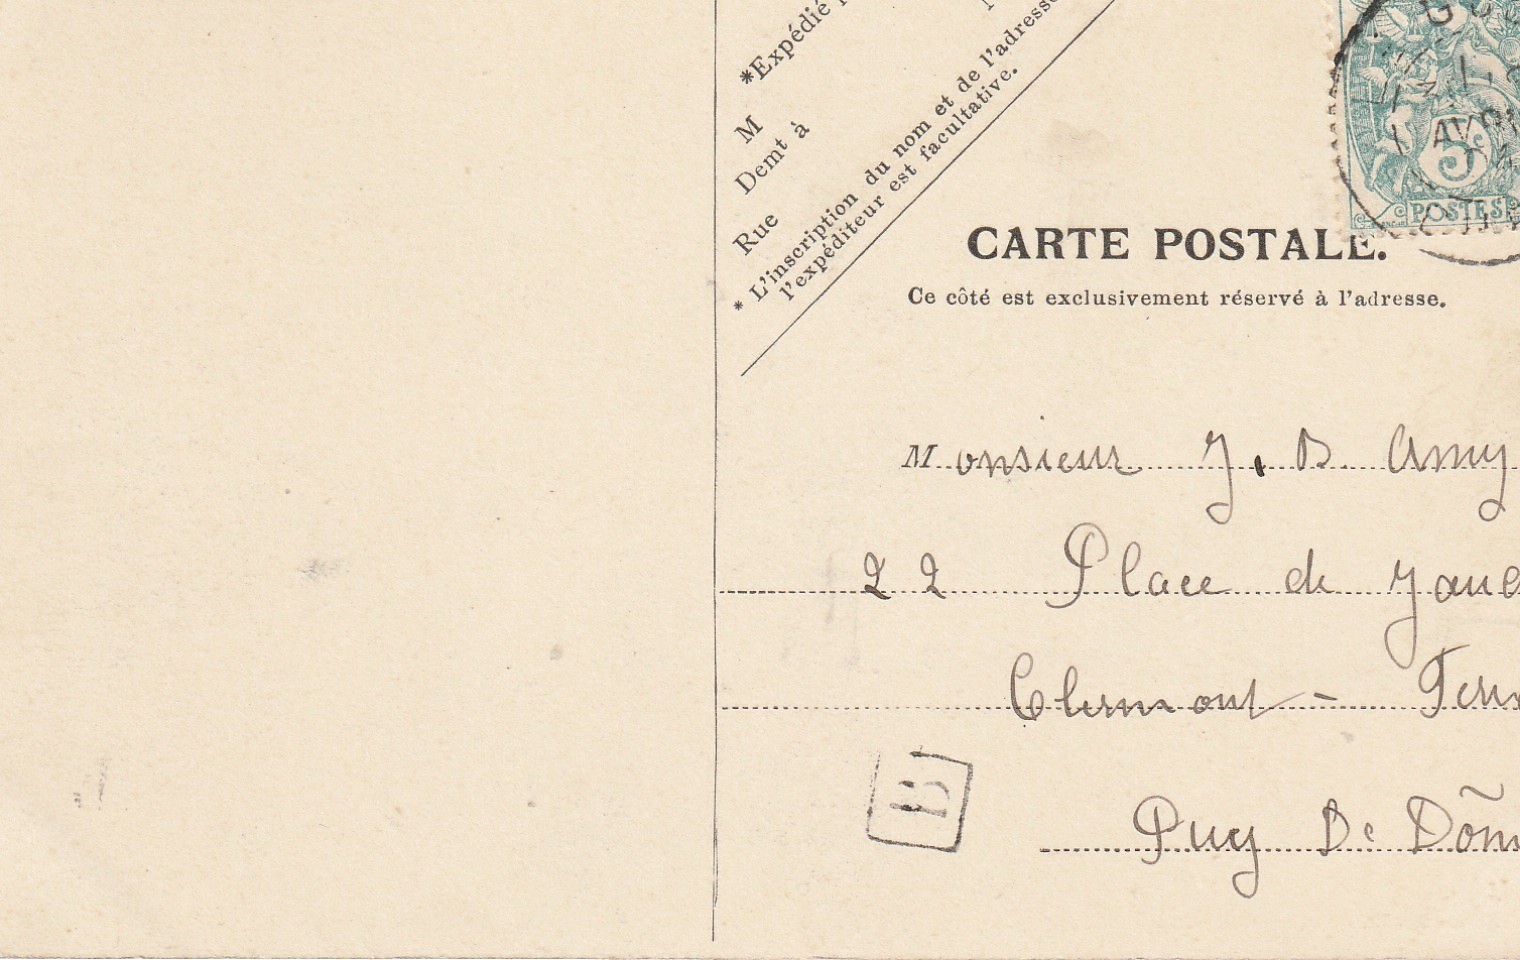 *Expédié
M
Demt à
Rue
* L'inscription du nom et de l'adresse
l'expéditeur est facultative.
AV
5c
POSTES
CARTE POSTALE.
Ce côté est exclusivement réservé à l'adresse.
Monsieur J. B. Amy
22 Place de Jaude
Clermont - Ferr
Puy De Dôm
B